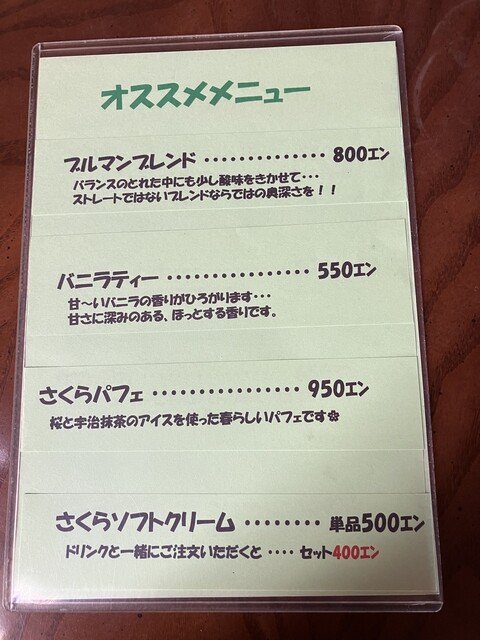 オススメメニュー
ブルマンブレンド ･･････････････ 800エン
バランスのとれた中にも少し酸味をきかせて･･･
ストレートではないブレンドならではの奥深さを！！
バニラティー ････････････････ 550エン
甘～いバニラの香りがひろがります･･･
甘さに深みのある、ほっとする香りです。
さくらパフェ ････････････････ 950エン
桜と宇治抹茶のアイスを使った春らしいパフェです❀
さくらソフトクリーム ････････ 単品500エン
ドリンクと一緒にご注文いただくと ････ セット400エン